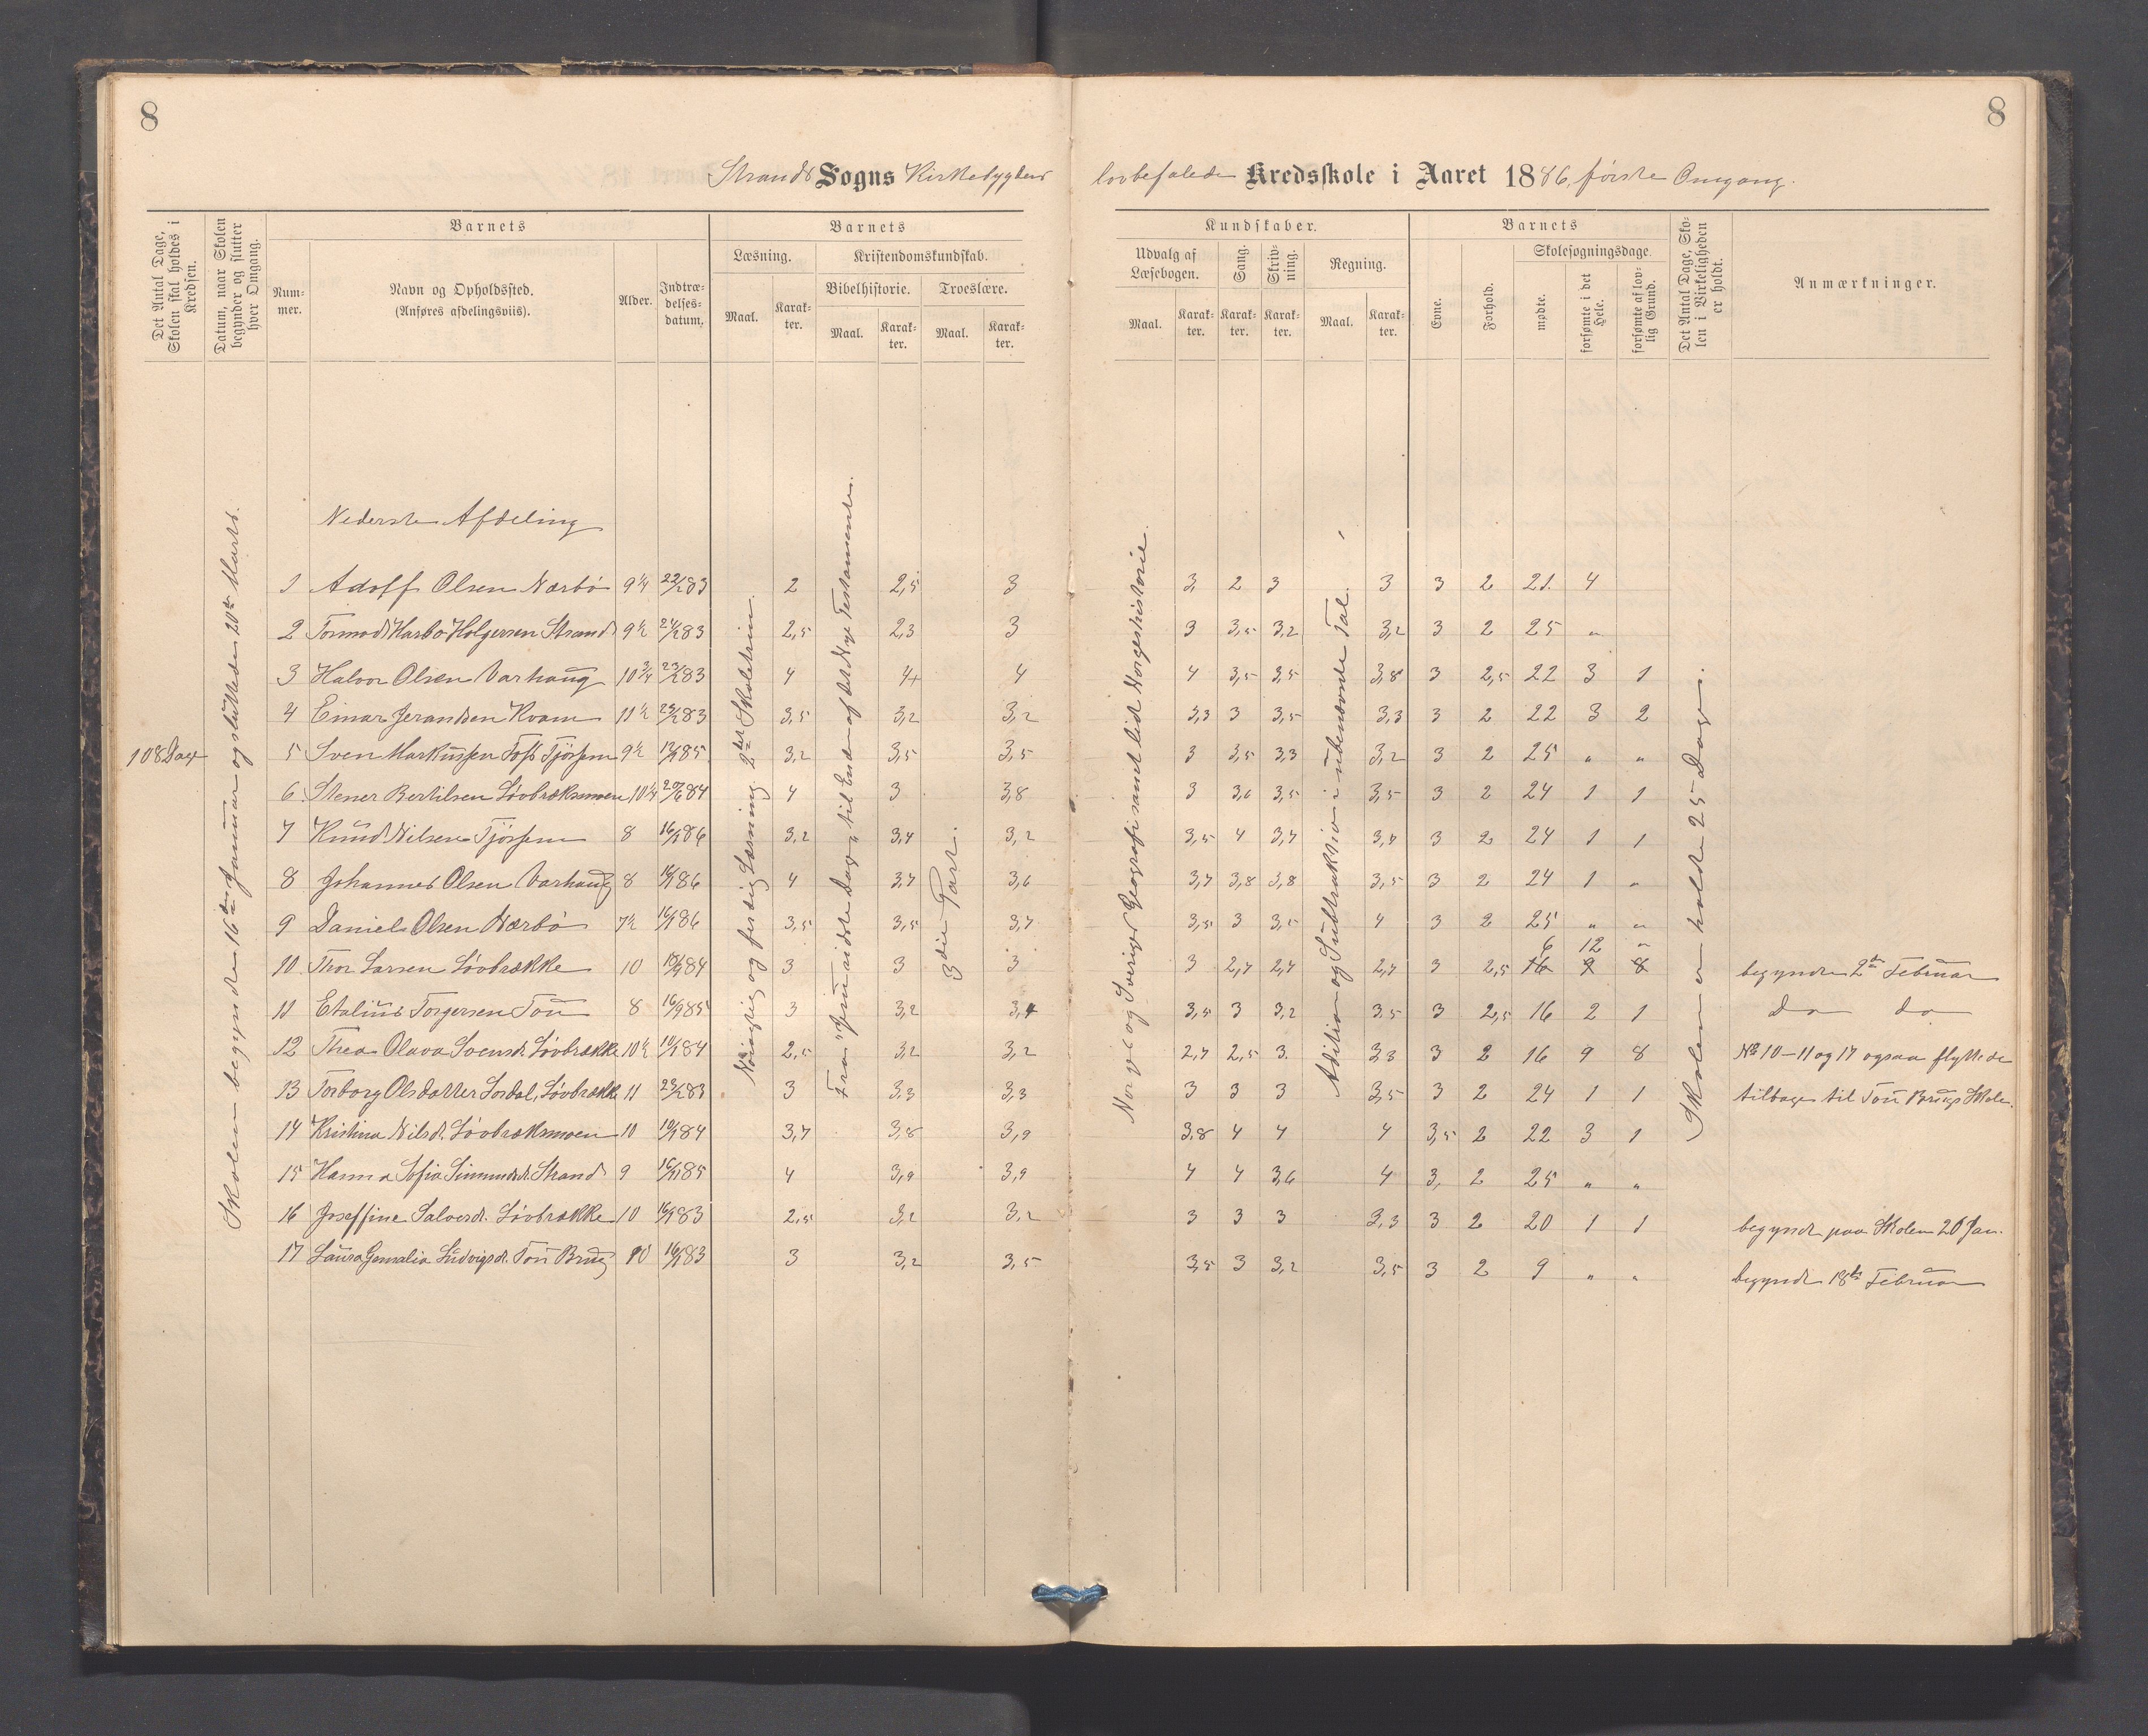 8
8
Strands Sogns Kirkebygdens
lovbefalede Kredsskole i Aaret 1886, første Omgang.
Det Antal Dage, Skolen skal holdes i Kredsen.
Datum, naar Skolen begynder og slutter hver Omgang.
Barnets
Num-
mer.
Navn og Opholdssted.
(Anføres afdelingsviis).
Alder.
Indtræ-
delses-
datum.
Barnets
Læsning.
Maal.
Karak-
ter.
Kristendomskundskab.
Bibelhistorie.
Maal.
Karak-
ter.
Troeslære.
Maal.
Karak-
ter.
Kundskaber.
Udvalg af
Læsebogen.
Maal.
Karak-
ter.
Sang.
Karak-
ter.
Skriv-
ning.
Karak-
ter.
Regning.
Maal.
Karak-
ter.
Barnets
Evne.
Forhold.
Skolesøgningsdage.
mødte.
forsømte i det Hele.
forsømte af lov-
lig Grund.
Det Antal Dage, Sko-
len i Virkeligheden
er holdt.
Anmærkninger.
108 Dage
Skolen begyndte 16de Januar og sluttede 20de Marts.
Nøiagtig og færdig Læsning 2det Skoletrin.
Fra "Jesu sidste Dage" til Enden af det Nye Testamente.
3die Part.
Norges og Sveriges Geografi samt lidt Norgeshistorie.
Adition og Subtraktion i ubenævnte Tal.
Skolen er holdt 25 Dage.
Nederste Afdeling
1 Adolf Olsen Nærbø 9 1/4 22/1 83 2 2,5 3 3, 2 3 3 3 2 21. 4
2 Tormod Harbo Holgersen Strand 9 1/2 24/1 83 2,5 2,3 3 3 3,5 3,2 3,2 3 2 25 "
3 Halvor Olsen Varhaug 10 3/4 23/1 83 4 4+ 4 4 3,5 3,5 3,8 3 2,5 22 3 1
4 Einar Jerandsen Kvam 11 1/2 23/1 83 3,5 3,2 3,2 3,3 3 3,5 3,3 3 2 22 3 2
5 Sven Markussen Toft Tjøssem 9 1/2 85 3,2 3,5 3,5 3 3,5 3,3 3,2 3 2 25 " "
6 Stener Bertilsen Løvbræksmoen 10 1/4 20/6 84 4 3 3,8 3 3,6 3,5 3,5 3 2 24 1 1
7 Knud Nilsen Tjøssem 8 16/1 86 3,2 3,4 3,2 3,5 4 3,7 3,7 3 2 24 1 1
8 Johannes Olsen Varhaug 8 16/1 86 4 3,7 3,6 3,7 3,8 3,8 3,5 3 2 24 1 "
9 Daniel Olsen Nærbø 7 1/2 16/1 86 3,5 3,5 3,7 3,5 3 3,5 4 3 2 25 " "
6 12 "
10 Thor Larsen Løvbrække 10 84 3 3 3 3 2,7 2,7 2,7 3 2,5 16 9 8 begyndte 2de Februar
11 Etalius Torgersen Tou 8 16/9 85 3 3,2 3,4 3,5 3 3,2 3,5 3 2,5 16 2 1 Do do
12 Thea Olava Svensd. Løvbrække 10 1/2 10/1 84 2,5 3,2 3,2 2,7 2,5 3. 3,3 3 2 16 9 8 No 10-11 og 17 ogsaa flyttede
13 Torborg Olsdatter Lerdal, Løvbrække 11 23/1 83 3 3,3 3,3 3 3 3 3,5 3 2 24 1 1 tilbage til Tou Brugs Skole.
14 Kristina Nilsd. Løvbræksmoen 10 10/1 84 3,7 3,8 3,9 3,8 4 4 4 3,5 2 22 3 1
15 Hanna Sofia Simundsd. Strand 9 16/1 85 4 3,9 3,9 4 4 3,6 4 3, 2 25 " "
16 Joseffine Salvesd. Løvbrække 10 83 2,5 3,2 3,2 3 3 3 3,3 3 2 20 1 1 begyndt paa Skolen 26 Jan.
17 Laura Gemalia Ludvigsd. Tou Brug 10 16/1 83 3 3,2 3,5 3,5 3 3,2 3,5 3 2 9 " " begyndte 18de Februar